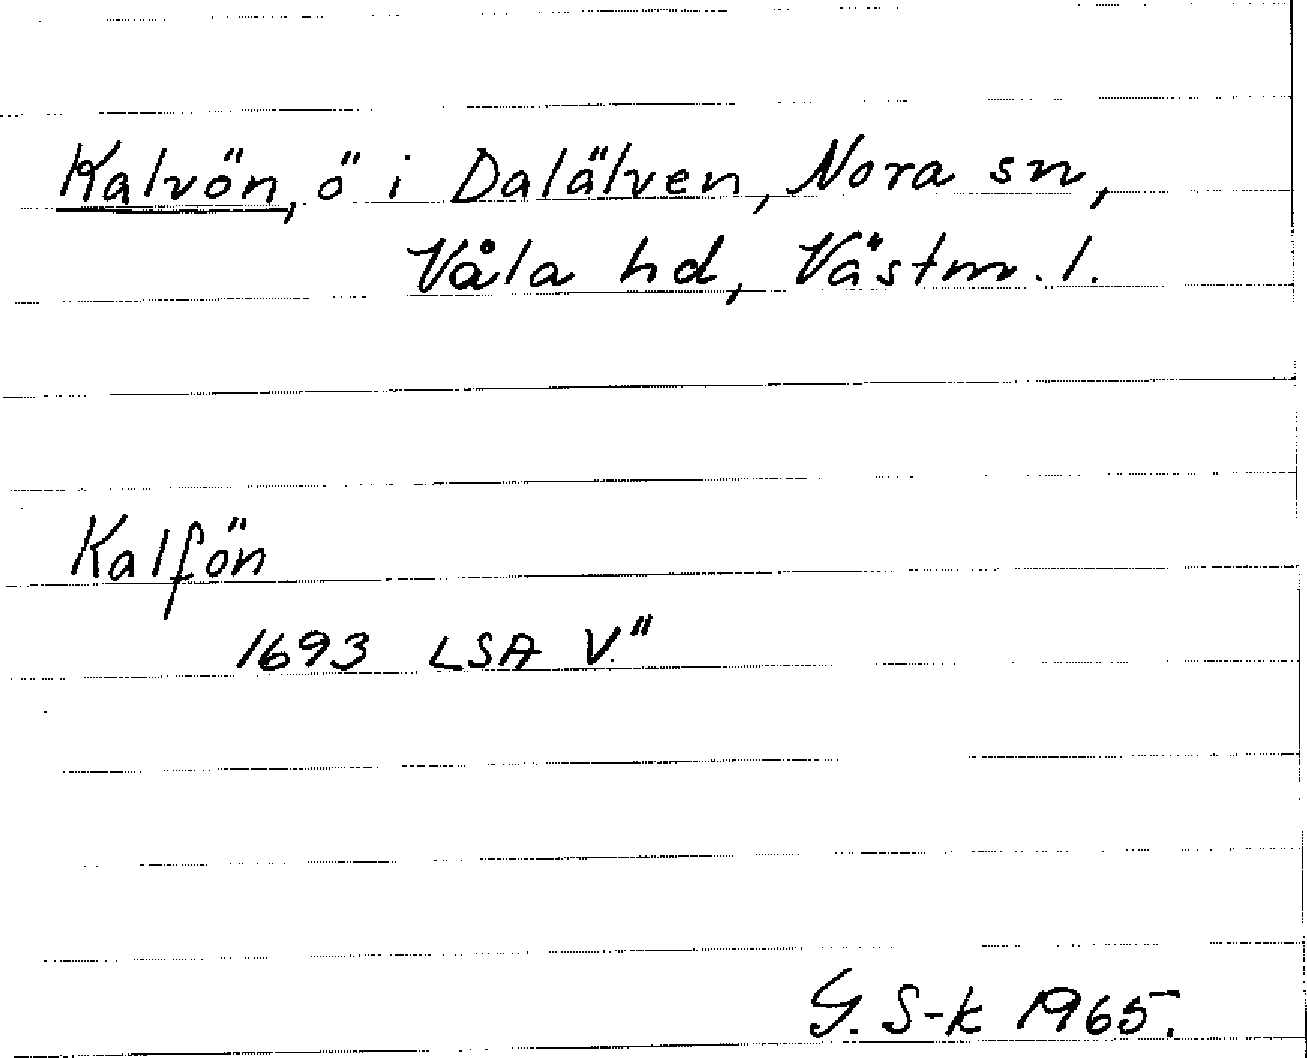 Kalvön, ö i Dalälven, Nora sn,
Våla hd, Västm. l.
Kalfön
1693 LSA V."
G. S-k 1965.